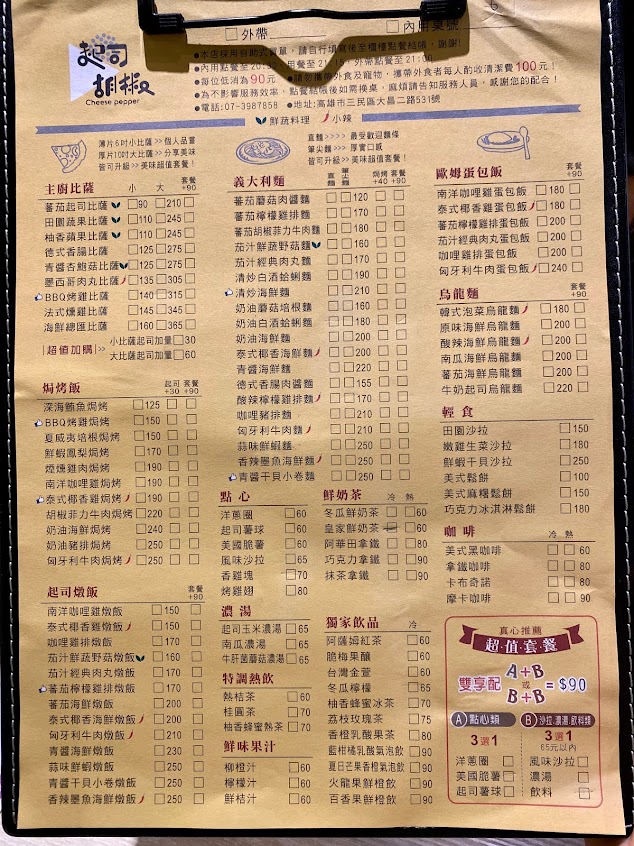 □外帶 □內用桌號
起司胡椒
Cheese pepper
●電話:07-3987858 ●地址:高雄市三民區大昌二路531號
鮮蔬料理 小辣
薄片6吋小比薩>>個人品嘗
厚片10吋大比薩>>分享美味
皆可升級>>美味超值套餐!
直麵>>>>最受歡迎麵條
筆尖麵>>>厚實口感
皆可升級>>美味超值套餐!
主廚比薩 小 大 套餐+90
蕃茄起司比薩 □90 □210 □
田園蔬果比薩 □110 □245 □
柚香蘋果比薩 □110 □245 □
德式香腸比薩 □125 □275 □
青醬杏鮑菇比薩 □125 □275 □
墨西哥肉丸比薩 □135 □305 □
BBQ烤雞比薩 □140 □315 □
法式燻雞比薩 □145 □345 □
海鮮總匯比薩 □160 □365 □
超值加購>> 小比薩起司加量□30
大比薩起司加量□60
焗烤飯 起司+30 套餐+90
深海鮪魚焗烤 □125 □ □
BBQ烤雞焗烤 □150 □ □
夏威夷培根焗烤 □150 □ □
鮮蝦鳳梨焗烤 □170 □ □
煙燻雞肉焗烤 □190 □ □
南洋咖哩雞焗烤 □190 □ □
泰式椰香雞焗烤 □190 □ □
胡椒菲力牛肉焗烤 □220 □ □
奶油海鮮焗烤 □240 □ □
奶油豬排焗烤 □250 □ □
匈牙利牛肉焗烤 □250 □ □
起司燉飯 套餐+90
南洋咖哩雞燉飯 □150 □
泰式椰香雞燉飯 □150 □
咖哩雞排燉飯 □170 □
茄汁鮮蔬野菇燉飯 □160 □
茄汁經典肉丸燉飯 □170 □
蕃茄檸檬雞燉飯 □170 □
蕃茄海鮮燉飯 □200 □
泰式椰香海鮮燉飯 □200 □
匈牙利牛肉燉飯 □210 □
青醬海鮮燉飯 □230 □
蒜味鮮蝦燉飯 □250 □
青醬干貝小卷燉飯 □250 □
香辣墨魚海鮮燉飯 □250 □
義大利麵 直麵 筆尖麵 焗烤+40 套餐+90
蕃茄蘑菇肉醬麵 □□120 □ □
蕃茄檸檬雞排麵 □□170 □ □
蕃茄胡椒菲力牛肉麵 □□180 □ □
茄汁鮮蔬野菇麵 □□160 □ □
茄汁經典肉丸麵 □□170 □ □
清炒白酒蛤蜊麵 □□190 □ □
清炒海鮮麵 □□210 □ □
奶油蘑菇培根麵 □□160 □ □
奶油白酒蛤蜊麵 □□180 □ □
奶油海鮮麵 □□200 □ □
泰式椰香海鮮麵 □□200 □ □
青醬海鮮麵 □□220 □ □
德式香腸肉醬麵 □□155 □ □
酸辣檸檬雞排麵 □□170 □ □
咖哩豬排麵 □□210 □ □
匈牙利牛肉麵 □□210 □ □
蒜味鮮蝦麵 □□250 □ □
香辣墨魚海鮮麵 □□250 □ □
青醬干貝小卷麵 □□250 □ □
點心
洋蔥圈 □60
起司薯球 □60
美國脆薯 □60
風味沙拉 □65
香雞塊 □70
烤雞翅 □80
濃湯
起司玉米濃湯 □65
南瓜濃湯 □65
牛肝菌蘑菇濃湯 □65
特調熱飲
熱桔茶 □60
桂圓茶 □70
柚香蜂蜜熱茶 □70
鮮味果汁
柳橙汁 □60
檸檬汁 □60
鮮桔汁 □60
鮮奶茶 冷 熱
冬瓜鮮奶茶 □□60
皇家鮮奶茶 □□60
阿華田拿鐵 □□80
巧克力拿鐵 □□90
抹茶拿鐵 □□90
獨家飲品 冷
阿薩姆紅茶 □60
脆梅果釀 □60
台灣金萱 □60
冬瓜檸檬 □65
柚香蜂蜜冰茶 □70
荔枝玫瑰茶 □75
香橙乳酸果茶 □80
藍柑橘乳酸氣泡飲 □90
夏日芒果香橙氣泡飲 □90
火龍果鮮橙飲 □90
百香果鮮橙飲 □90
歐姆蛋包飯 套餐+90
南洋咖哩雞蛋包飯 □180 □
泰式椰香雞蛋包飯 □180 □
蕃茄檸檬雞蛋包飯 □200 □
茄汁經典肉丸蛋包飯 □200 □
咖哩雞排蛋包飯 □200 □
匈牙利牛肉蛋包飯 □240 □
烏龍麵 套餐+90
韓式泡菜烏龍麵 □180 □
原味海鮮烏龍麵 □200 □
酸辣海鮮烏龍麵 □200 □
南瓜海鮮烏龍麵 □200 □
蕃茄海鮮烏龍麵 □200 □
牛奶起司烏龍麵 □220 □
輕食
田園沙拉 □150
嫩雞生菜沙拉 □180
鮮蝦干貝沙拉 □250
美式鬆餅 □100
美式麻糬鬆餅 □150
巧克力冰淇淋鬆餅 □180
咖啡 冷 熱
美式黑咖啡 □□60
拿鐵咖啡 □□80
卡布奇諾 □□80
摩卡咖啡 □□90
真心推薦
超·值·套·餐
雙享配 A+B 或 B+B =$90
A 點心類 B 沙拉.濃湯.飲料類
3選1 3選1
65元以內
洋蔥圈□ 風味沙拉□
美國脆薯□ 濃湯□
起司薯球□ 飲料□